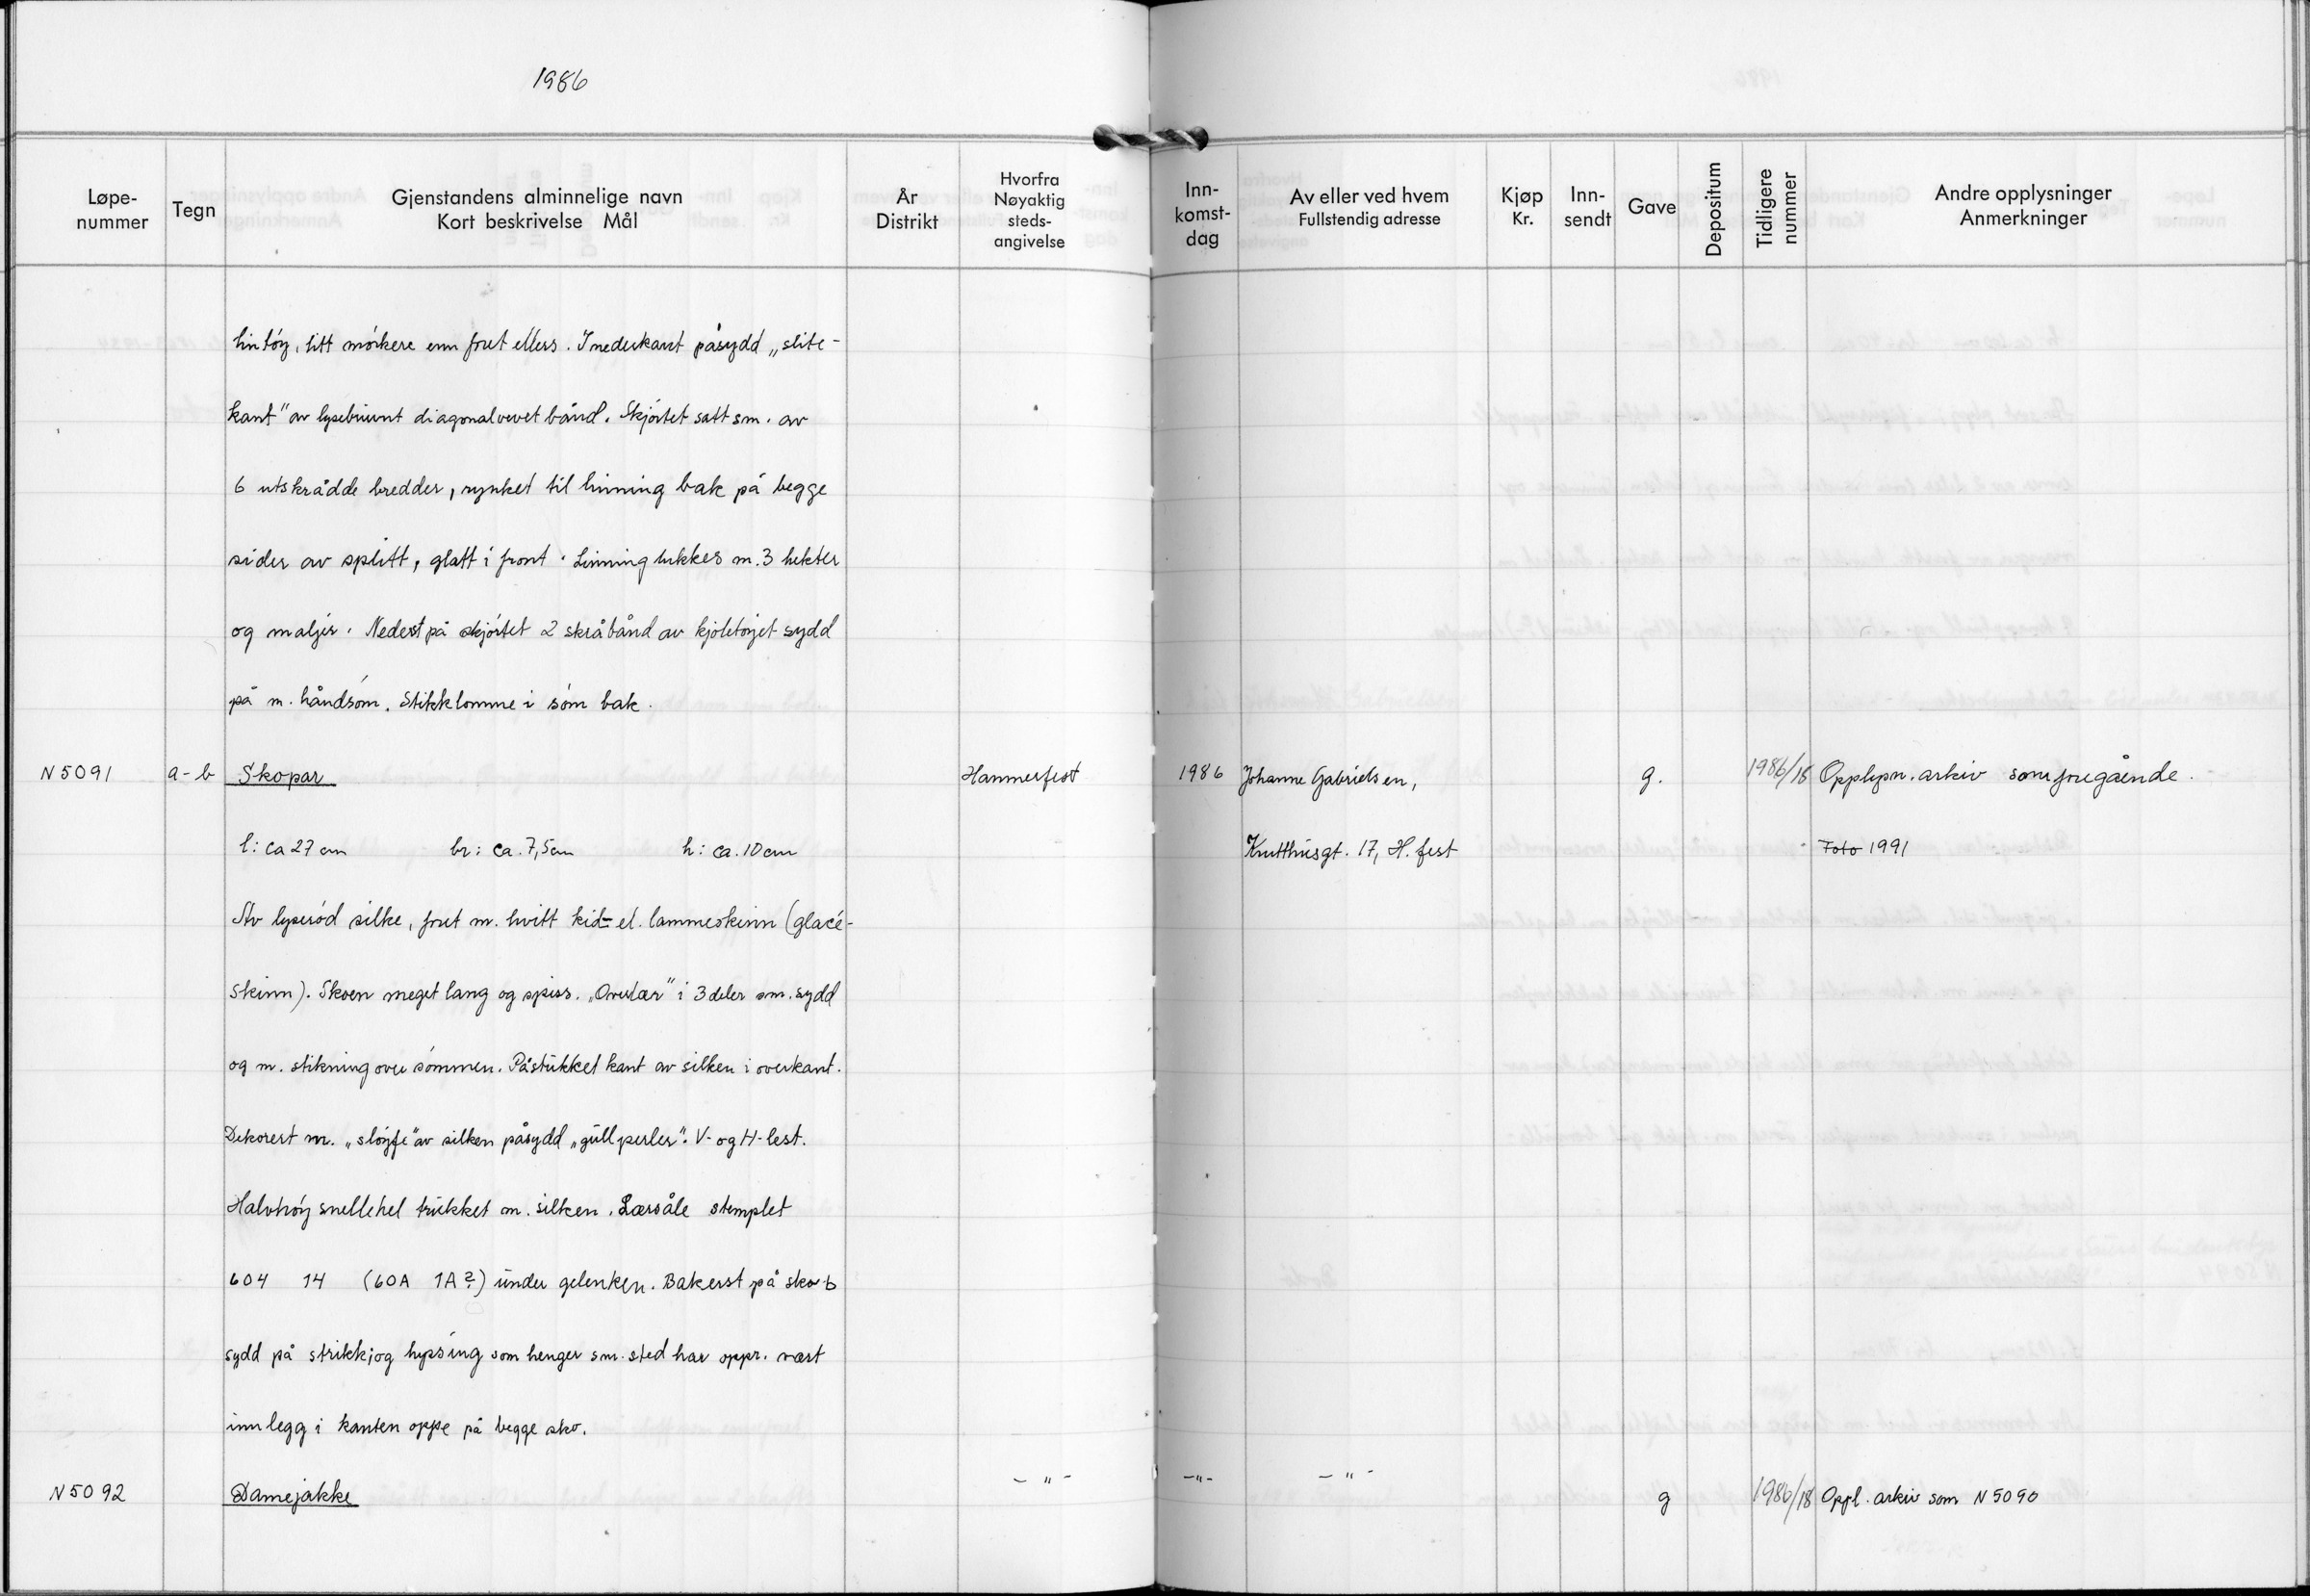 1986
Løpe-
nummer
Tegn
Gjenstandens alminnelige navn
Kort beskrivelse Mål
År
Distrikt
Hvorfra
Nøyaktig
steds-
angivelse
Inn-
komst-
dag
Av eller ved hvem
Fullstendig adresse
Kjøp
Kr.
Inn-
sendt
Gave
Depositum
Tidligere
nummer
Andre opplysninger
Anmerkninger
lintøy, litt mørkere enn foret ellers. I nederkant påsydd „slite-
kant" av lysebrunt diagonalvevet bånd. Skjørtet satt sm. av
6 utskrådde bredder, rynket til linning bak på begge
sider av splitt, glatt i front. Linning lukkes m. 3 hekter
og maljer. Nederst på skjørtet 2 skråbånd av kjoletøyet sydd
på m. håndsøm. Stikklomme i søm bak.
N 5091 a-b Skopar Hammerfest 1986 Johanne Gabrielsen, g. 1986/18 Opplysn. arkiv som foregående.
l: ca 27 cm br: ca. 7,5cm h: ca. 10 cm Krutthusgt. 17, H. fest Foto 1991
Av lyserød silke, foret m. hvitt kid- el. lammeskinn (glacé-
skinn). Skoen meget lang og spiss. „Overlær" i 3 deler sm. sydd
og m. stikning over sømmen. Påstukket kant av silken i overkant.
Dekorert m. „sløyfe" av silken påsydd „gullperler". V- og H-lest.
Halvhøy snellehel trukket m. silken. Lærsåle stemplet
604 14 (60A 1A?) under gelenken. Bakerst på sko b
sydd på strikk; og hysing som henger sm. sted har oppr. vært
innlegg i kanten oppe på begge sko.
N 5092 Damejakke -"- -"- -"- g 1986/18 Oppl. arkiv som N 5090